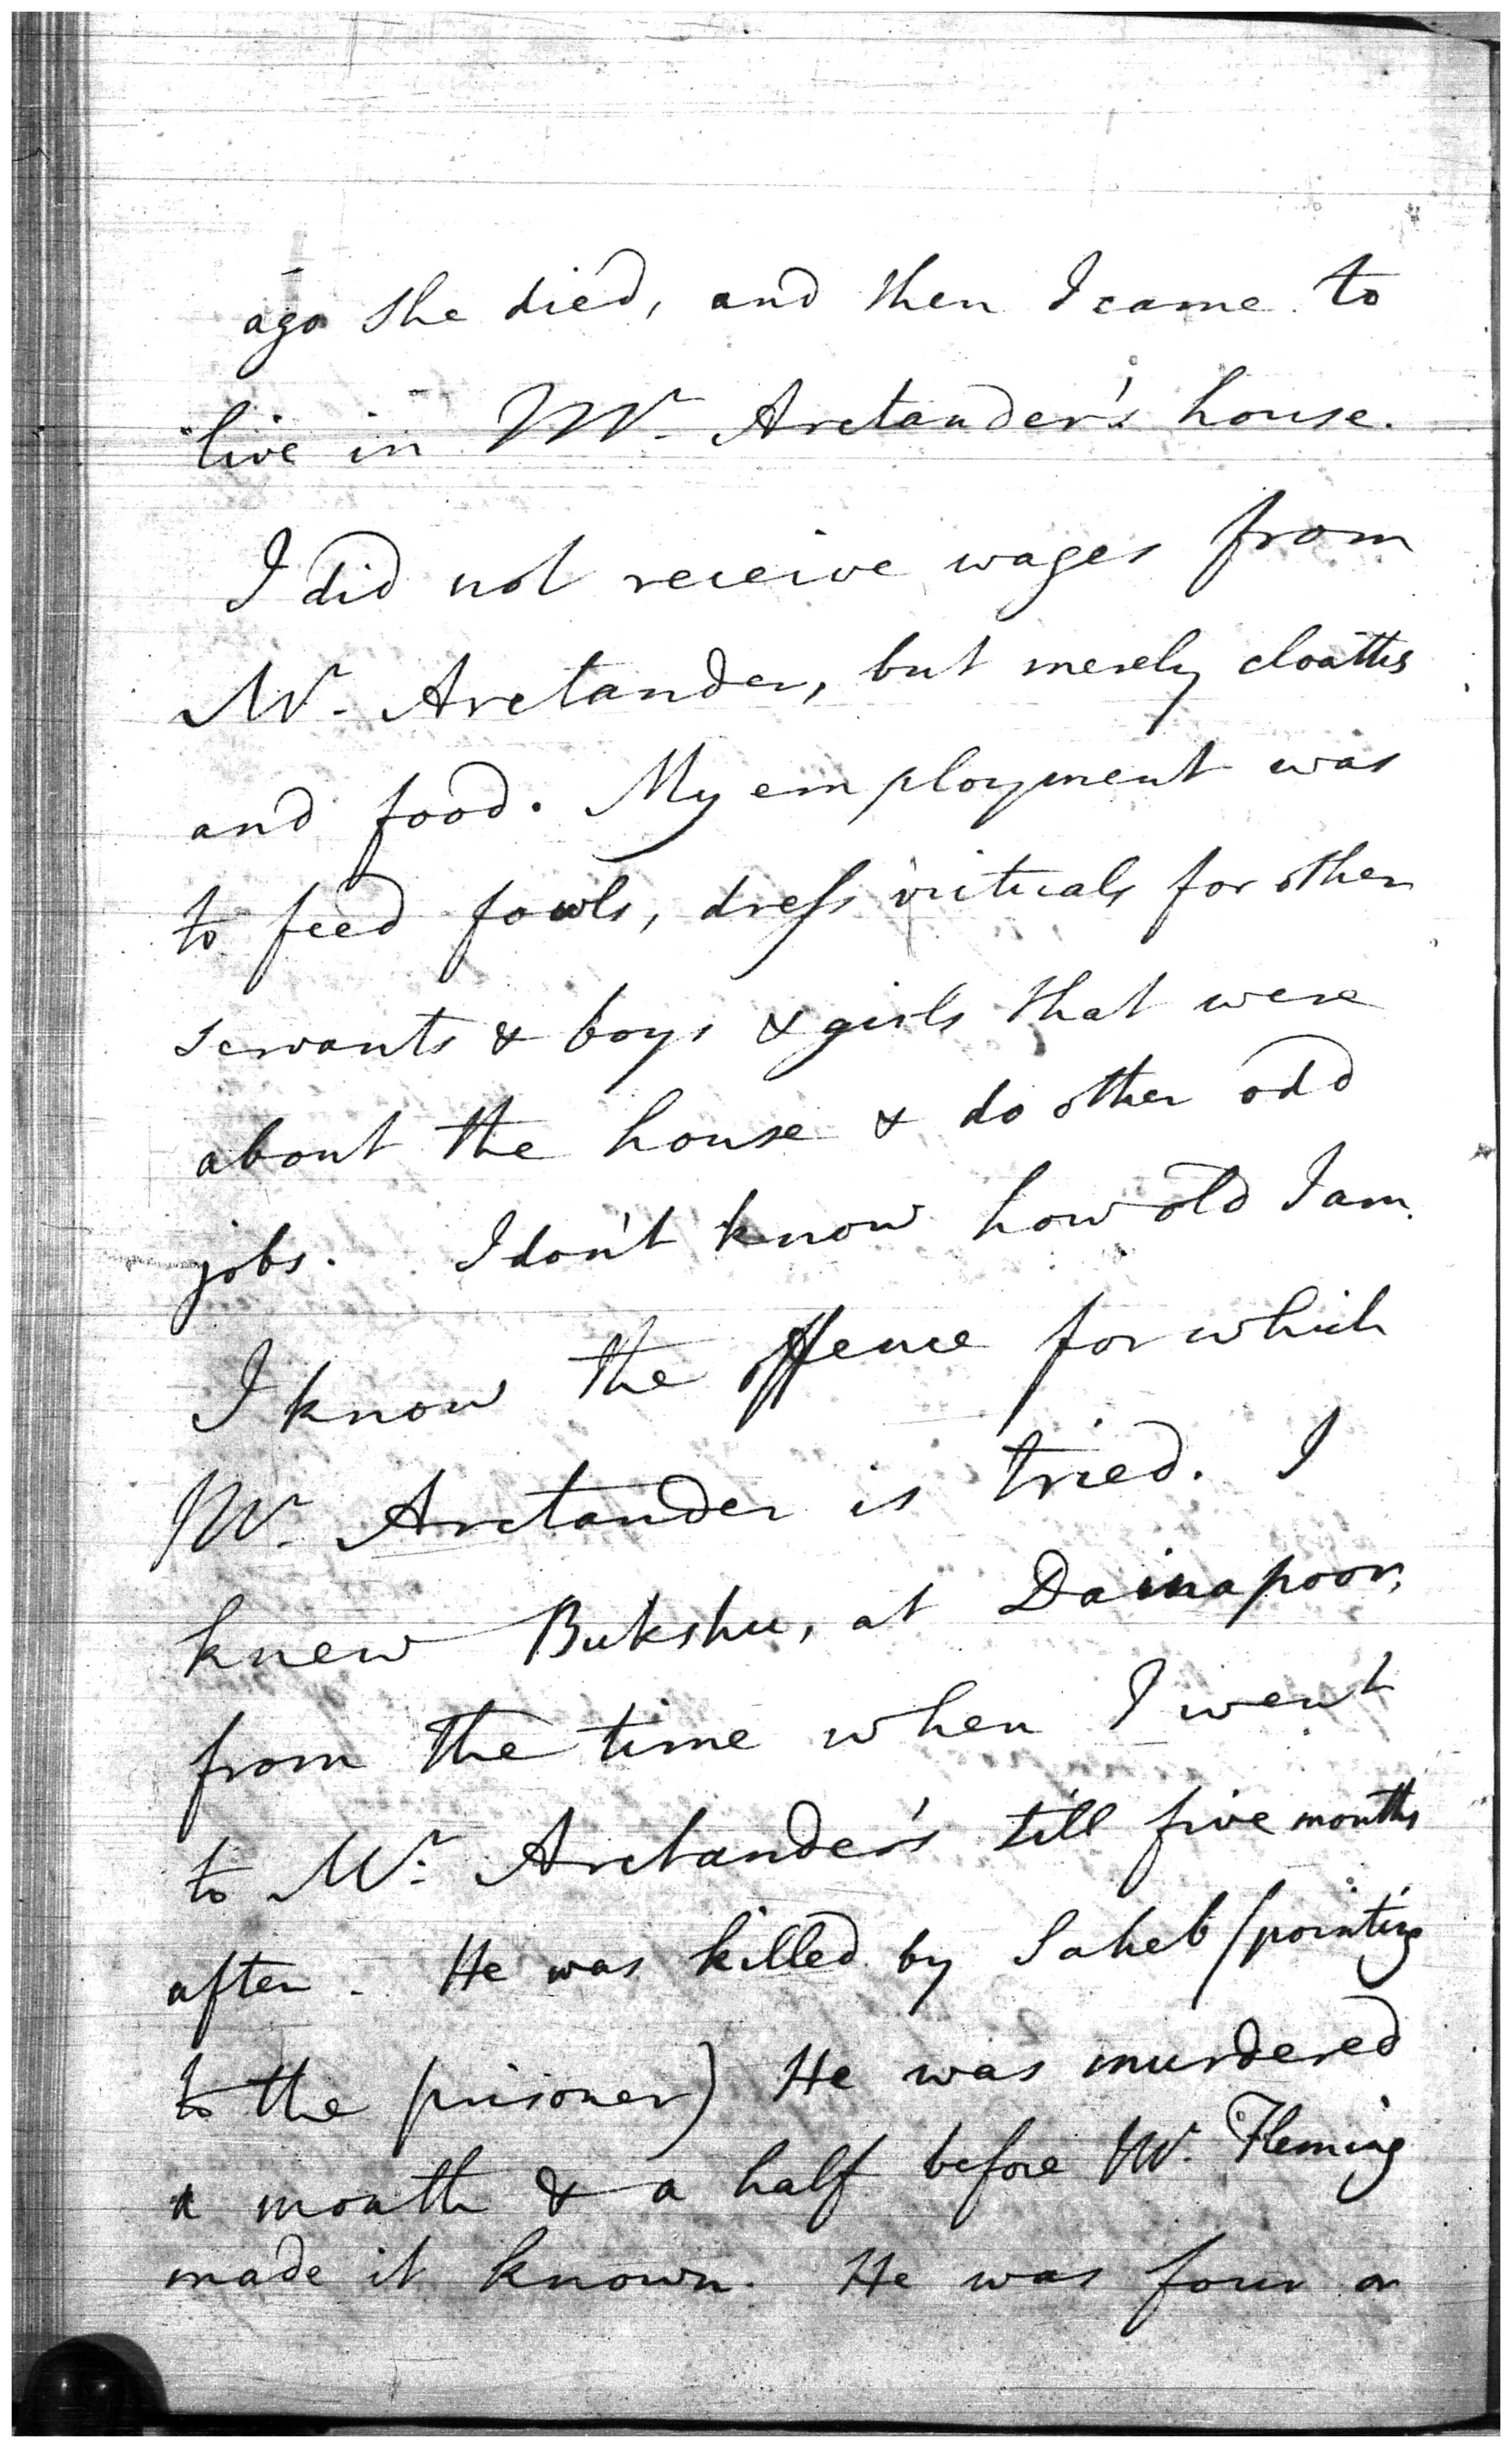 ago she died, and then I came to
live in Mr. Arctander's house.
I did not receive wages from
Mr. Arctander, but merely cloaths
and food. My employment was
to feed fowls, dress vituals for other
servants & boys & girls that were
about the house & do other odd
jobs. I don't know how old I am.
I know the offence for which
Mr. Arctander is tried. I
knew Bukshu, at Dainapoor,
from the time when I went
to Mr. Arctander's till five months
after. He was killed by Saheb (pointing
to the prisoner) He was murdered
a month & a half before Mr. Fleming
made it known. He was four or